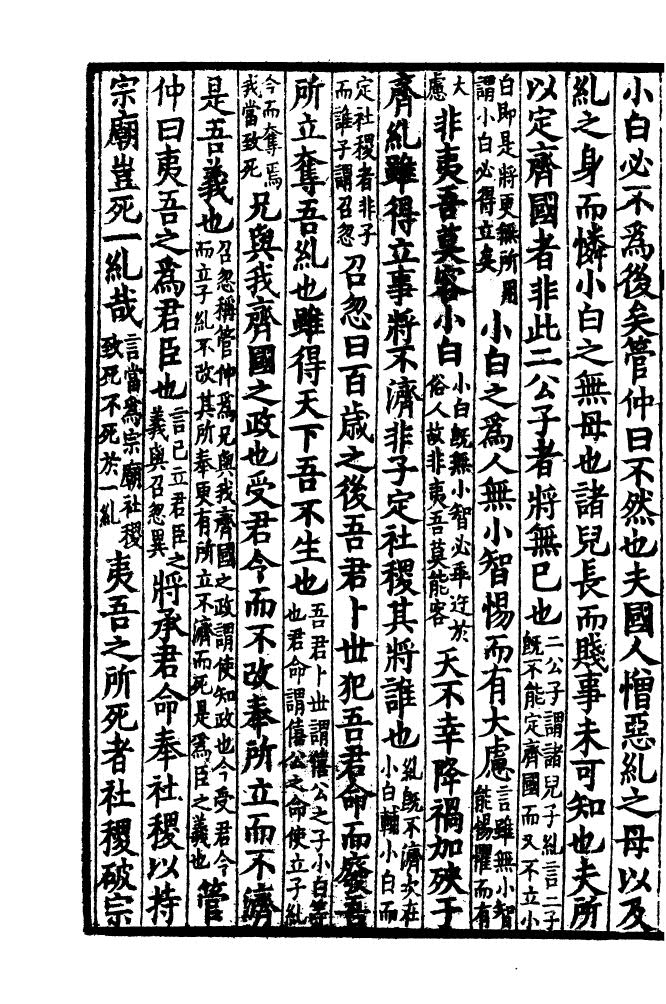 小白必不為後矣管仲曰不然也夫國人憎惡糺之母以及
糺之身而憐小白之無母也諸兒長而賤事未可知也夫所
以定齊國者非此二公子者將無已也二公子謂諸兒子糺言二子旣不能定齊國而又不立小
白即是將更無所用謂小白必得立矣小白之為人無小智惕而有大慮言雖無小智能惕懼而有
大慮非夷吾莫容小白小白旣無小智必乖迕於俗人故非夷吾莫能容天不幸降禍加殃于
齊糺雖得立事將不濟非子定社稷其將誰也糺旣不濟次在小白輔小白而
定社稷者非子而誰子謂召忽召忽曰百歲之後吾君卜世犯吾君命而廢吾
所立奪吾糺也雖得天下吾不生也吾君卜世謂僖公之子小白等也君命謂僖公之命使立子糺
今而奪焉我當致死兄與我齊國之政也受君令而不改奉所立而不濟
是吾義也召忽稱管仲為兄與我齊國之政謂使知政也今受君令而立子糺不改其所奉更有所立不濟而死是為臣之義也管
仲曰夷吾之為君臣也言已立君臣之義與召忽異將承君命奉社稷以持
宗廟豈死一糺哉言當為宗廟社稷致死不死於一糺夷吾之所死者社稷破宗